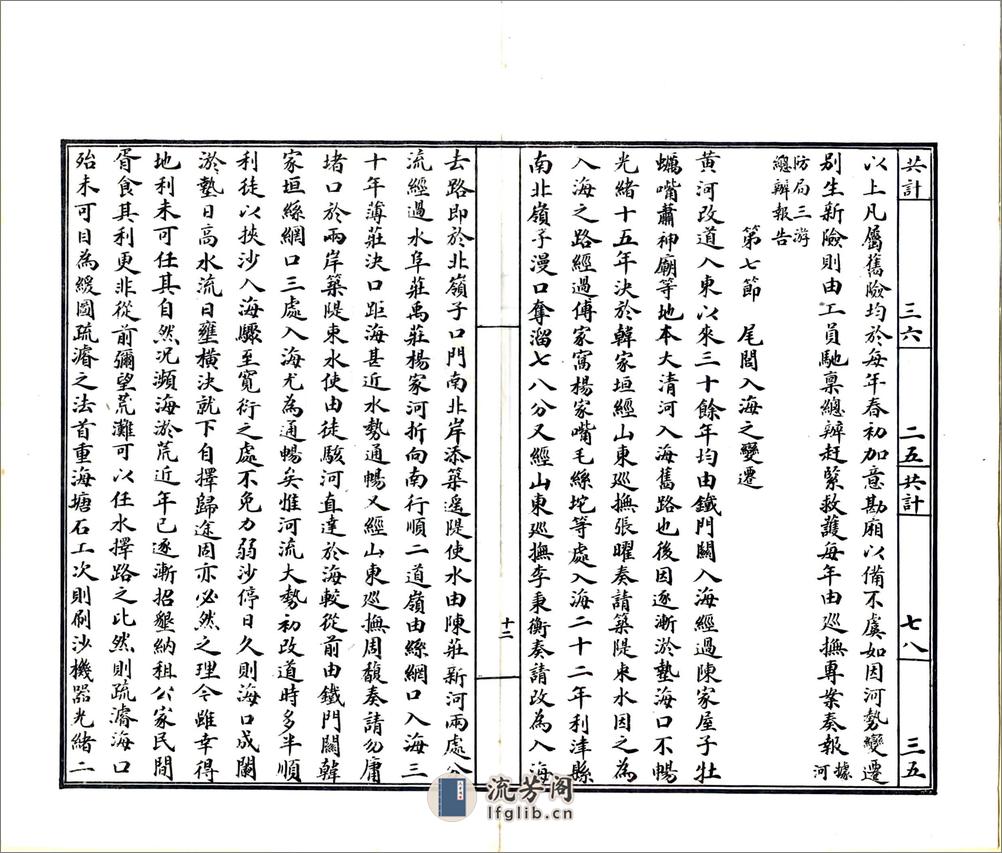 共計　三六　二五　共計　七八　三五
以上凡屬舊險均於每年春初加意勘廂以備不虞如因河勢變遷
別生新險則由工員馳稟總辦赶緊救護每年由巡撫專案奏報據河
防局三游
總辦報告
第七節　尾閭入海之變遷
黃河改道入東以來三十餘年均由鐵門關入海經過陳家屋子牡
蠣嘴蕭神廟等地本大清河入海舊路也後因逐漸淤墊海口不暢
光緒十五年決於韓家垣經山東巡撫張曜奏請築隄束水因之為
入海之路經過傅家窩楊家嘴毛絲坨等處入海二十二年利津縣
南北嶺子漫口奪溜七八分又經山東巡撫李秉衡奏請改為入海
十二
去路即於北嶺子口門南北岸添築遥隄使水由陳莊新河兩處分
流經過水阜莊禹莊楊家河折向南行順二道嶺由絲網口入海三
十年薄莊決口距海甚近水勢通暢又經山東巡撫周馥奏請勿庸
堵口於兩岸築隄束水使由徒駭河直達於海較從前由鐵門關韓
家垣絲網口三處入海尤為通暢矣惟河流大勢初改道時多半順
利徒以挾沙入海驟至寬衍之處不免力弱沙停日久則海口成闌
淤墊日高水流日壅橫決就下自擇歸途固亦必然之理今雖幸得
地利未可任其自然況瀕海淤荒近年已逐漸招墾納租公家民間
胥食其利更非從前彌望荒灘可以任水擇路之比然則疏濬海口
殆未可目為緩圖疏濬之法首重海塘石工次則刷沙機器光緒二
流芳阁
lfglib.cn